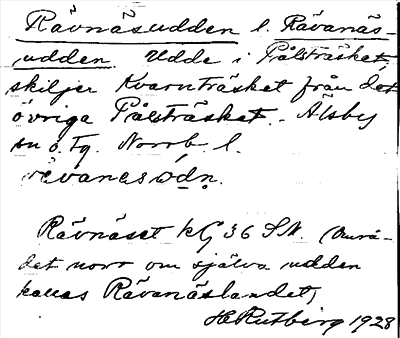 Rävnäsudden l. Rävanäs-
udden. Udde i Pålsträsket,
skiljer Kvarnträsket från det
övriga Pålsträsket. Älsby
sn o. tg. Norrb. l.
rävanesωdn.
Rävnäset kG 36 SN (Områ-
det norr om själva udden
kallas Rävanäslandet)
H Rutberg 1928